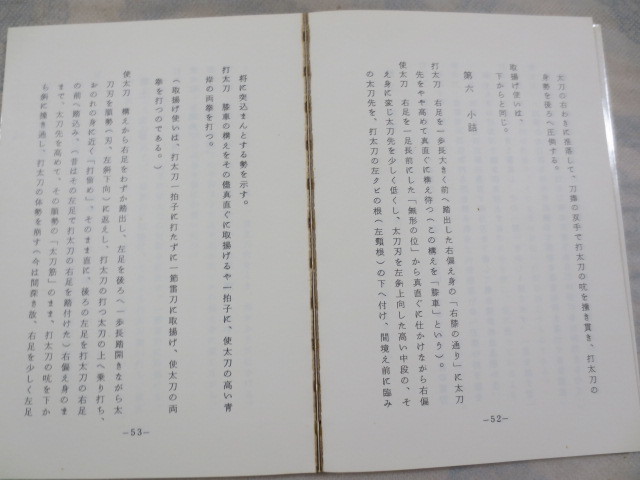 太刀の右わきに低落して、刀勝の直手で打太刀の吭を推き貫き、打太刀の
身勢を後ろへ圧倒する。
取揚げ使いは、
下からと同じ。
第六　小詰
打太刀　右足を一歩長大きく前へ踏出した右偏え身の「右膝の通り」に太刀
先をやや高めて真直ぐに構え待つ（この構えを「膝車」という）。
使太刀　右足を一足長前にした「無形の位」から真直ぐに仕かけながら右偏
え身に変じ太刀先を少しく低くし、太刀刃を左斜上向した高い中段の、そ
の太刀先を、打太刀の左クビの根（左頸根）の下へ付け、間境え前に臨み
−52−
将に突込まんとする勢を示す。
打太刀　膝車の構えをその儘真直ぐに取揚げるや一拍子に、使太刀の高い青
岸の両拳を打つ。
（取揚げ使いは、打太刀一拍子に打たずに一節雷刀に取揚げ、使太刀の両
拳を打つのである。）
使太刀　構えから右足をわずか踏出し、左足を後ろへ一歩長踏開きながら太
刀刃を順勢（刃、左斜下向）に返えし、打太刀の打つ太刀の上へ乗り打ち、
おのれの身に近く「打留め」、そのまま直に、後ろの左足を打太刀の右足
の前へ踏込み、（昔はその左足で打太刀の右足を踏付けた）右偏え身のま
まで、太刀先を高めて、その順勢の「太刀筋」のまま、打太刀の吭を下か
ら斜に推き通し、打太刀の体勢を崩す（今は間探き故、右足を少しく左足
−53−